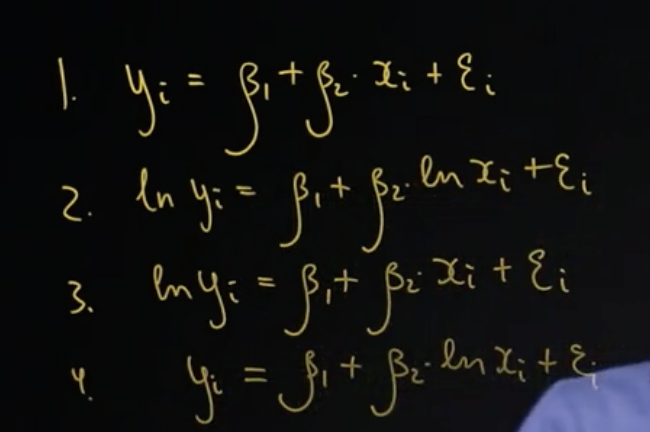 1. yᵢ = β₁ + β₂ · xᵢ + εᵢ
2. ln yᵢ = β₁ + β₂ · ln xᵢ + εᵢ
3. ln yᵢ = β₁ + β₂ · xᵢ + εᵢ
4. yᵢ = β₁ + β₂ · ln xᵢ + εᵢ